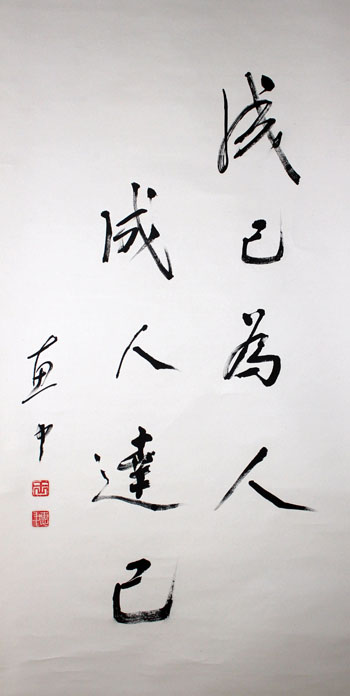 成己為人
成人達己
惠中